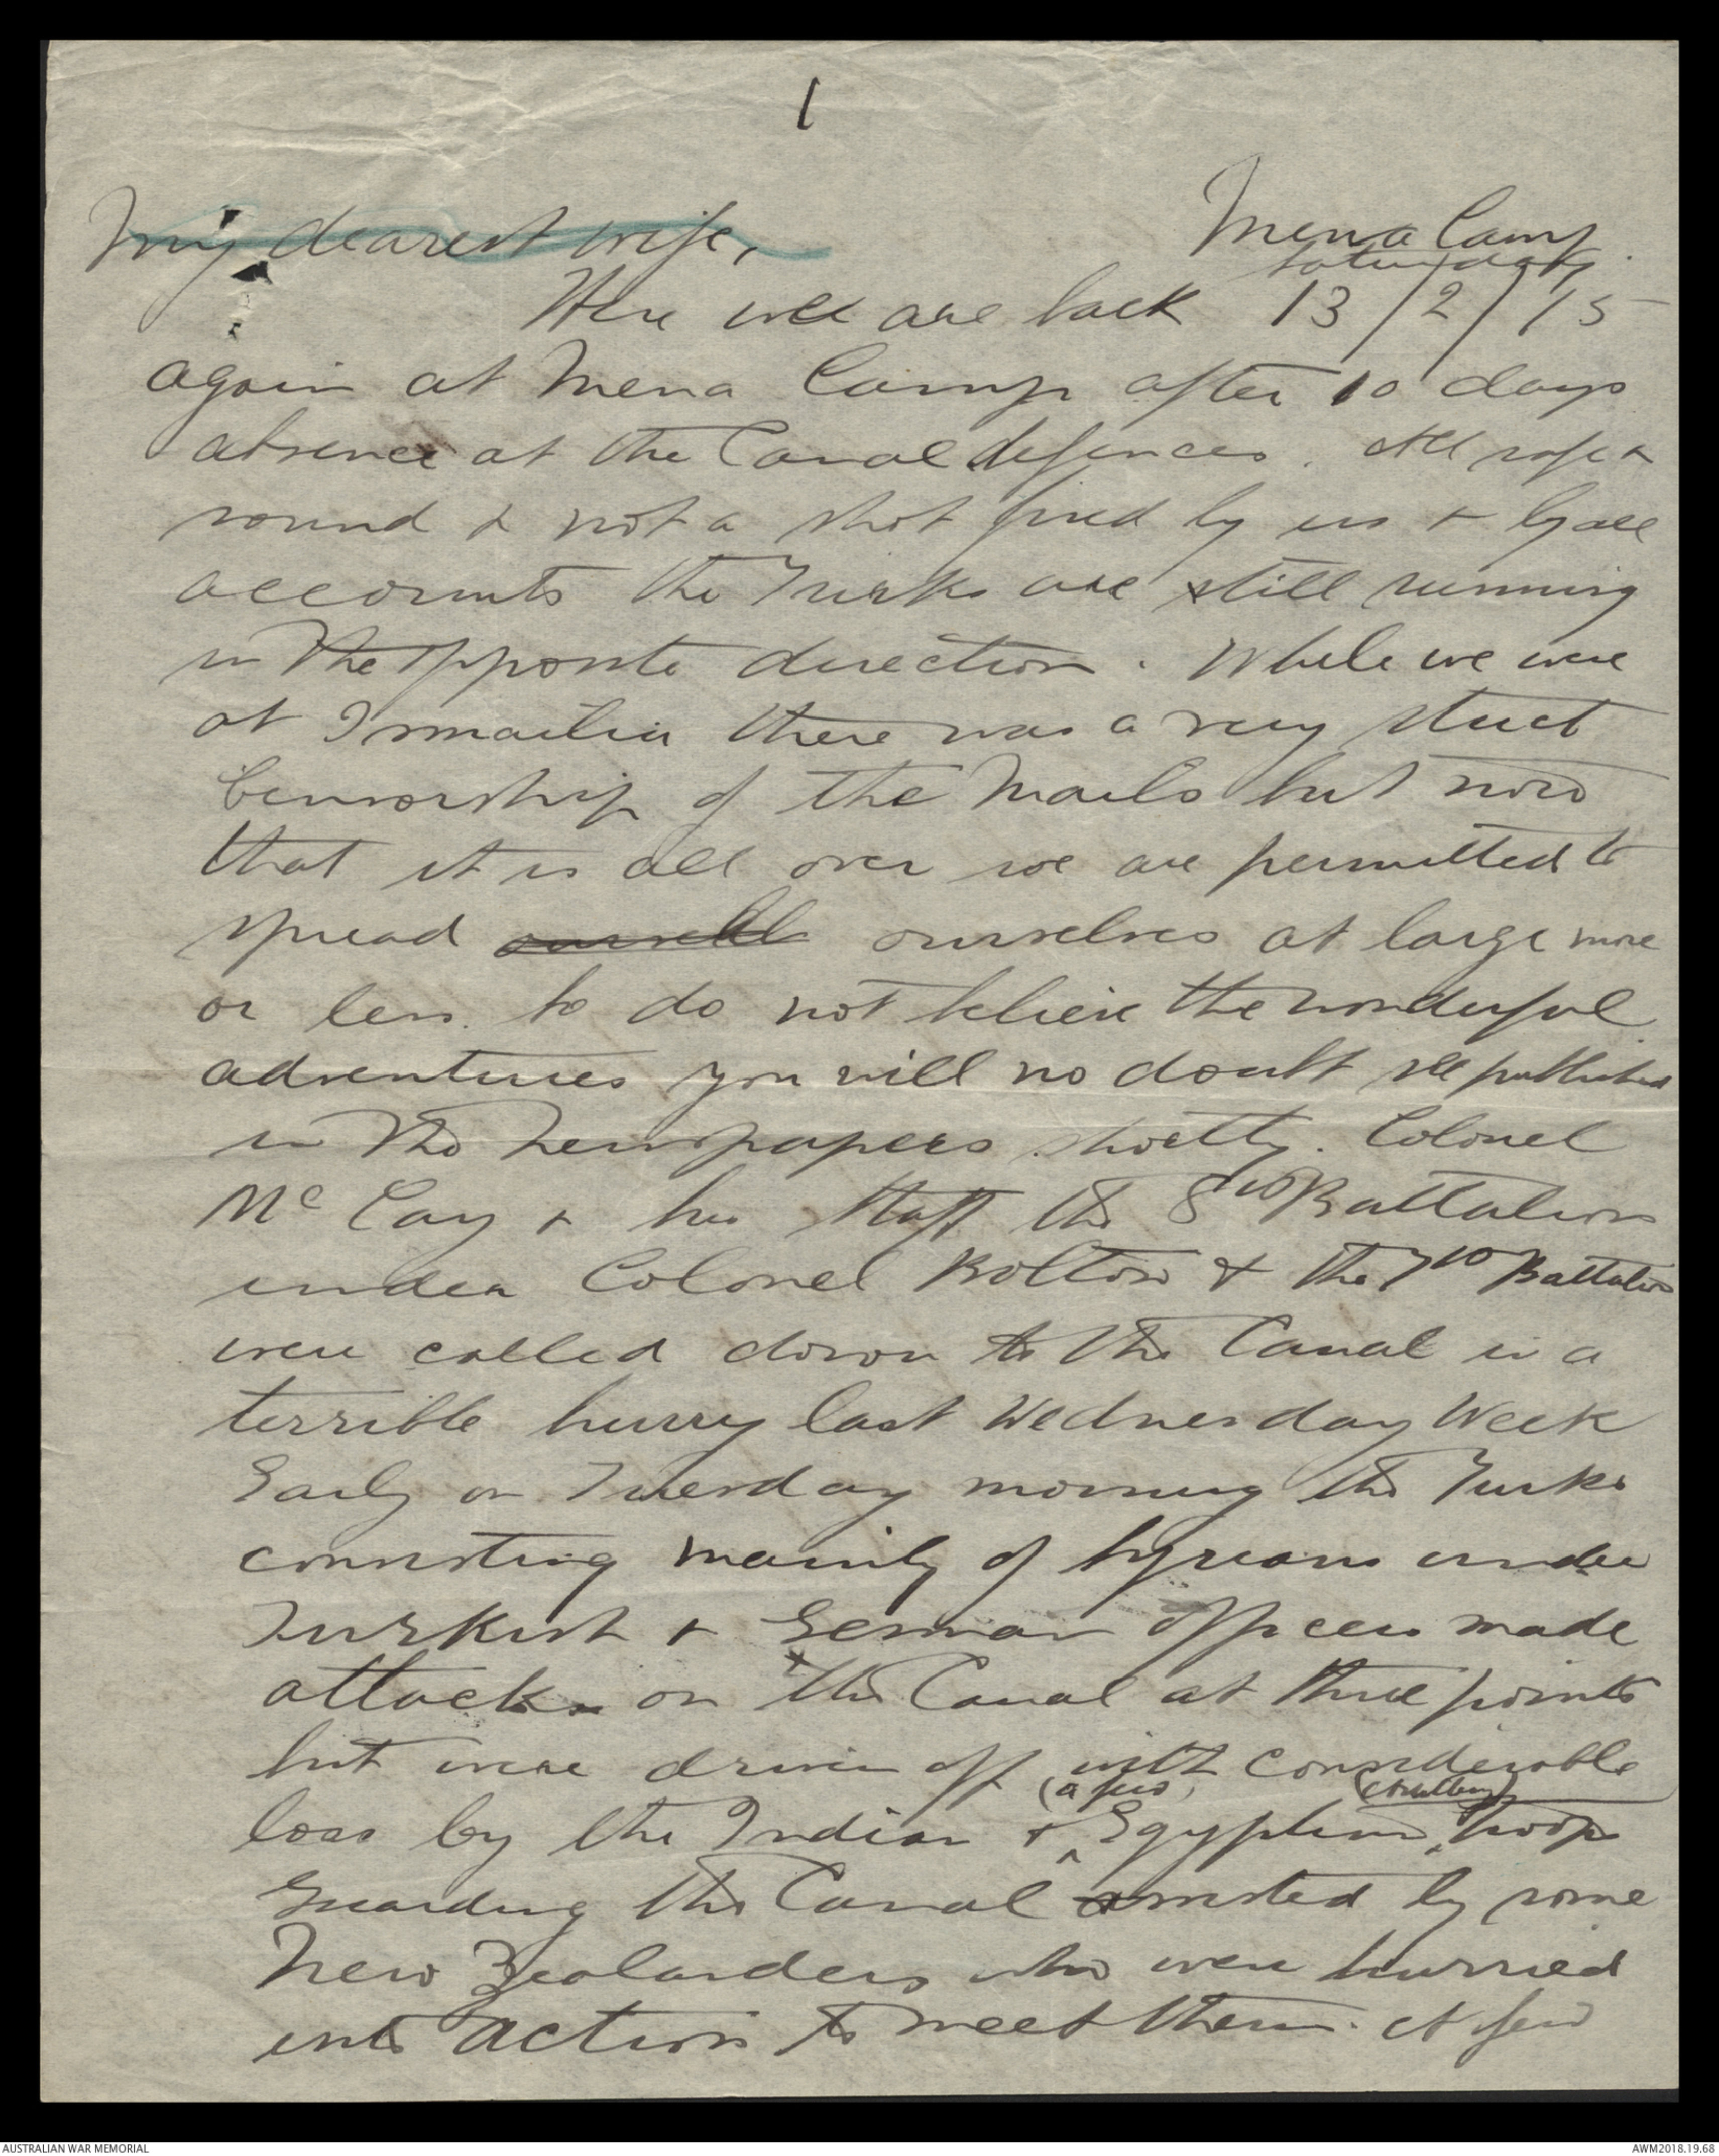 1
My dearest wife,
Mena Camp
Saturday
Here we are back 13/2/15
again at Mena Camp after 10 days
absence at the Canal defences. All safe &
sound & not a shot fired by us & by all
accounts the Turks are still running
in the opposite direction. While we were
at Ismailia there was a very strict
Censorship of the Mails but now
that it is all over we are permitted to
spread ourselves at large more
or less. So do not believe the wonderful
adventures you will no doubt see published
in the newspapers shortly. Colonel
McCay & his Staff the 8th Battalion
under Colonel Bolton & the 7th Battalion
were called down to the Canal in a
terrible hurry last Wednesday Week
Early on Tuesday morning the Turks
consisting mainly of Syrians under
Turkish & German officers made
attacks on the Canal at three points
but were driven off with considerable
(a few) (Artillery)
loss by the Indian & Egyptian troops
Guarding the Canal assisted by some
New Zealanders who were hurried
into action to meet them. A few
AUSTRALIAN WAR MEMORIAL
AWM2018.19.68